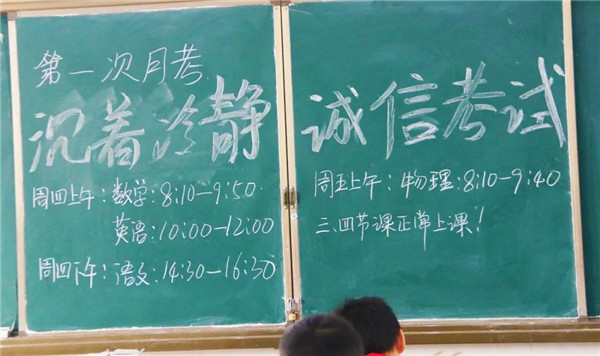 第一次月考
沉着冷静
周四上午:数学:8:10-9:50
英语:10:00-12:00
周四下午:语文:14:30-16:30
诚信考试
周五上午:物理:8:10-9:40
三.四节课正常上课!